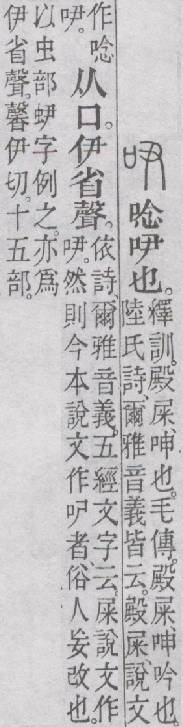 唸㕧也。釋訓。殿屎、呻也。毛傳。殿屎、呻吟也
陸氏詩、爾雅音義皆云。殿屎、說文
作唸
㕧。从口。伊省聲。依詩、爾雅音義、五經文字云。屎說文作
㕧。然則今本說文作𠯋者、俗人妄改也。
以虫部𧉅字例之。亦爲
伊省聲。馨伊切。十五部。